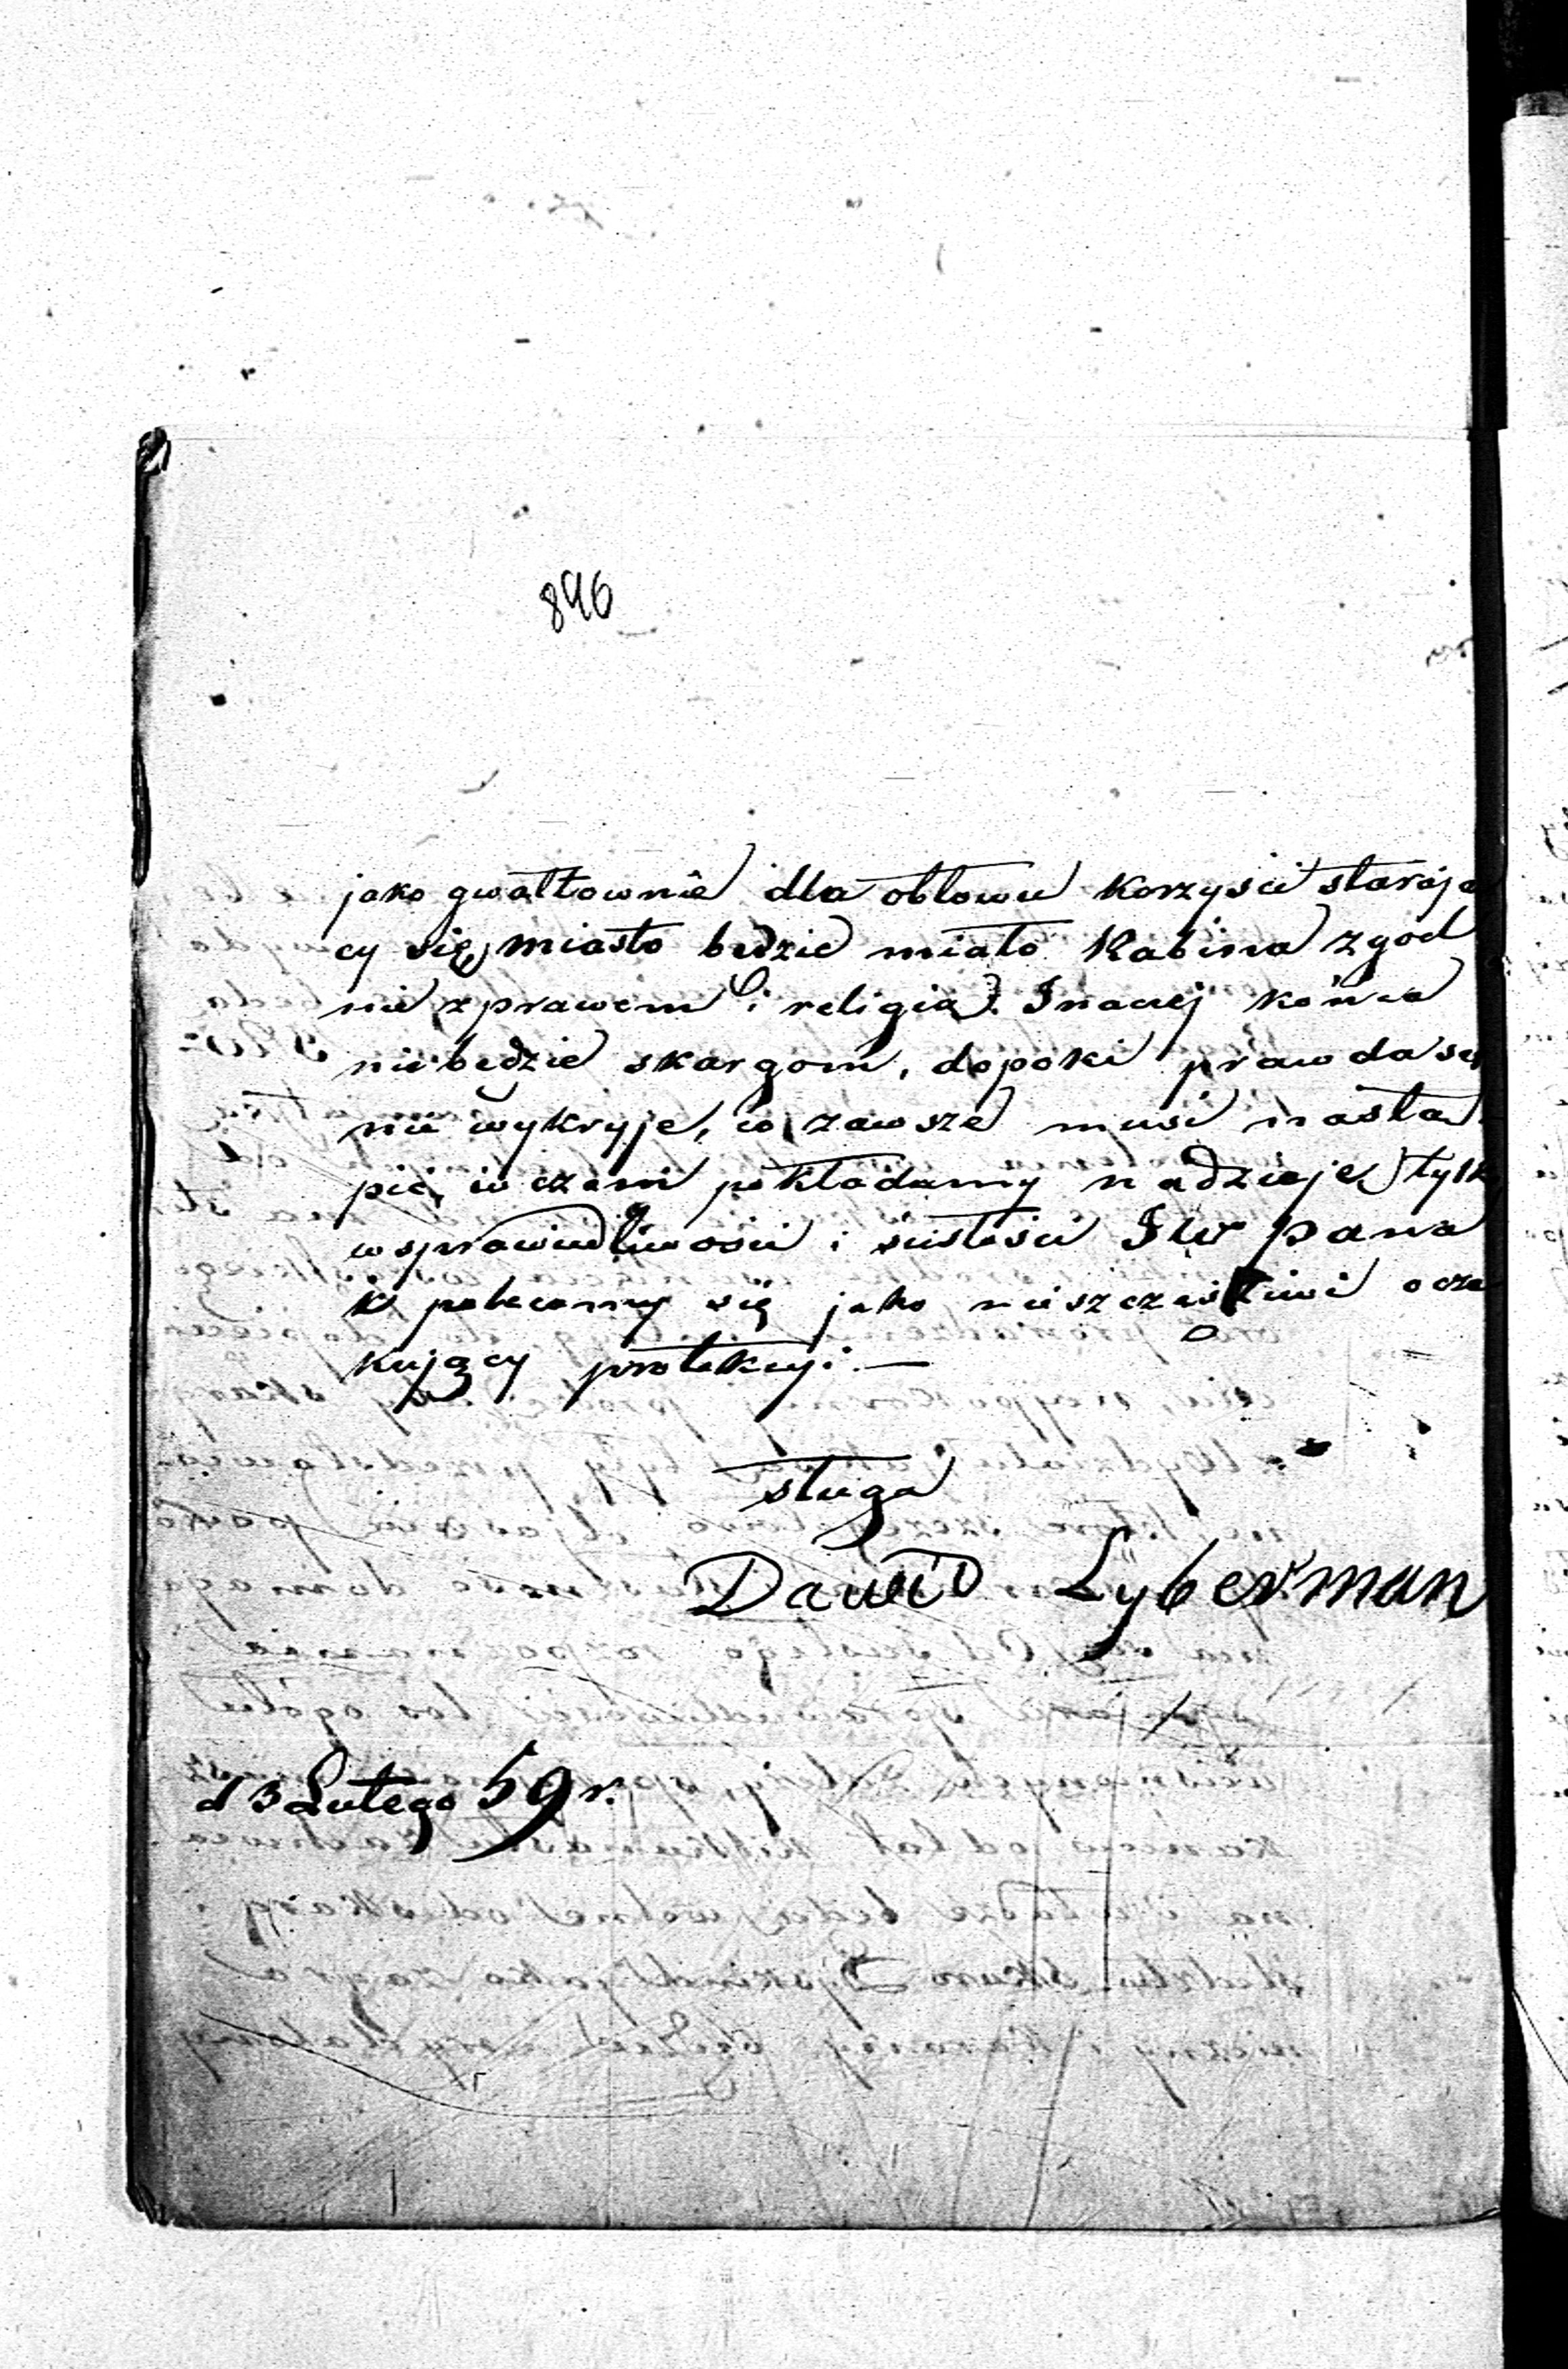 896
jako gwałtownie dla obłowu korzyści starają
cy się, miasto będzie miało Rabina zgod
nie z prawem i religią. Inaczej końca
nie będzie skargom, dopoki prawda się
nie wykryje, co zawsze musi nastą
pić, w czem pokładamy nadzieje tylk
w sprawiedliwości i ścisłości JW Pana
polecamy się jako nieszczęśliwi ocze
kujący protekcyi. —
sługa
Dawid Lyberman
d 3 Lutego 59 r.